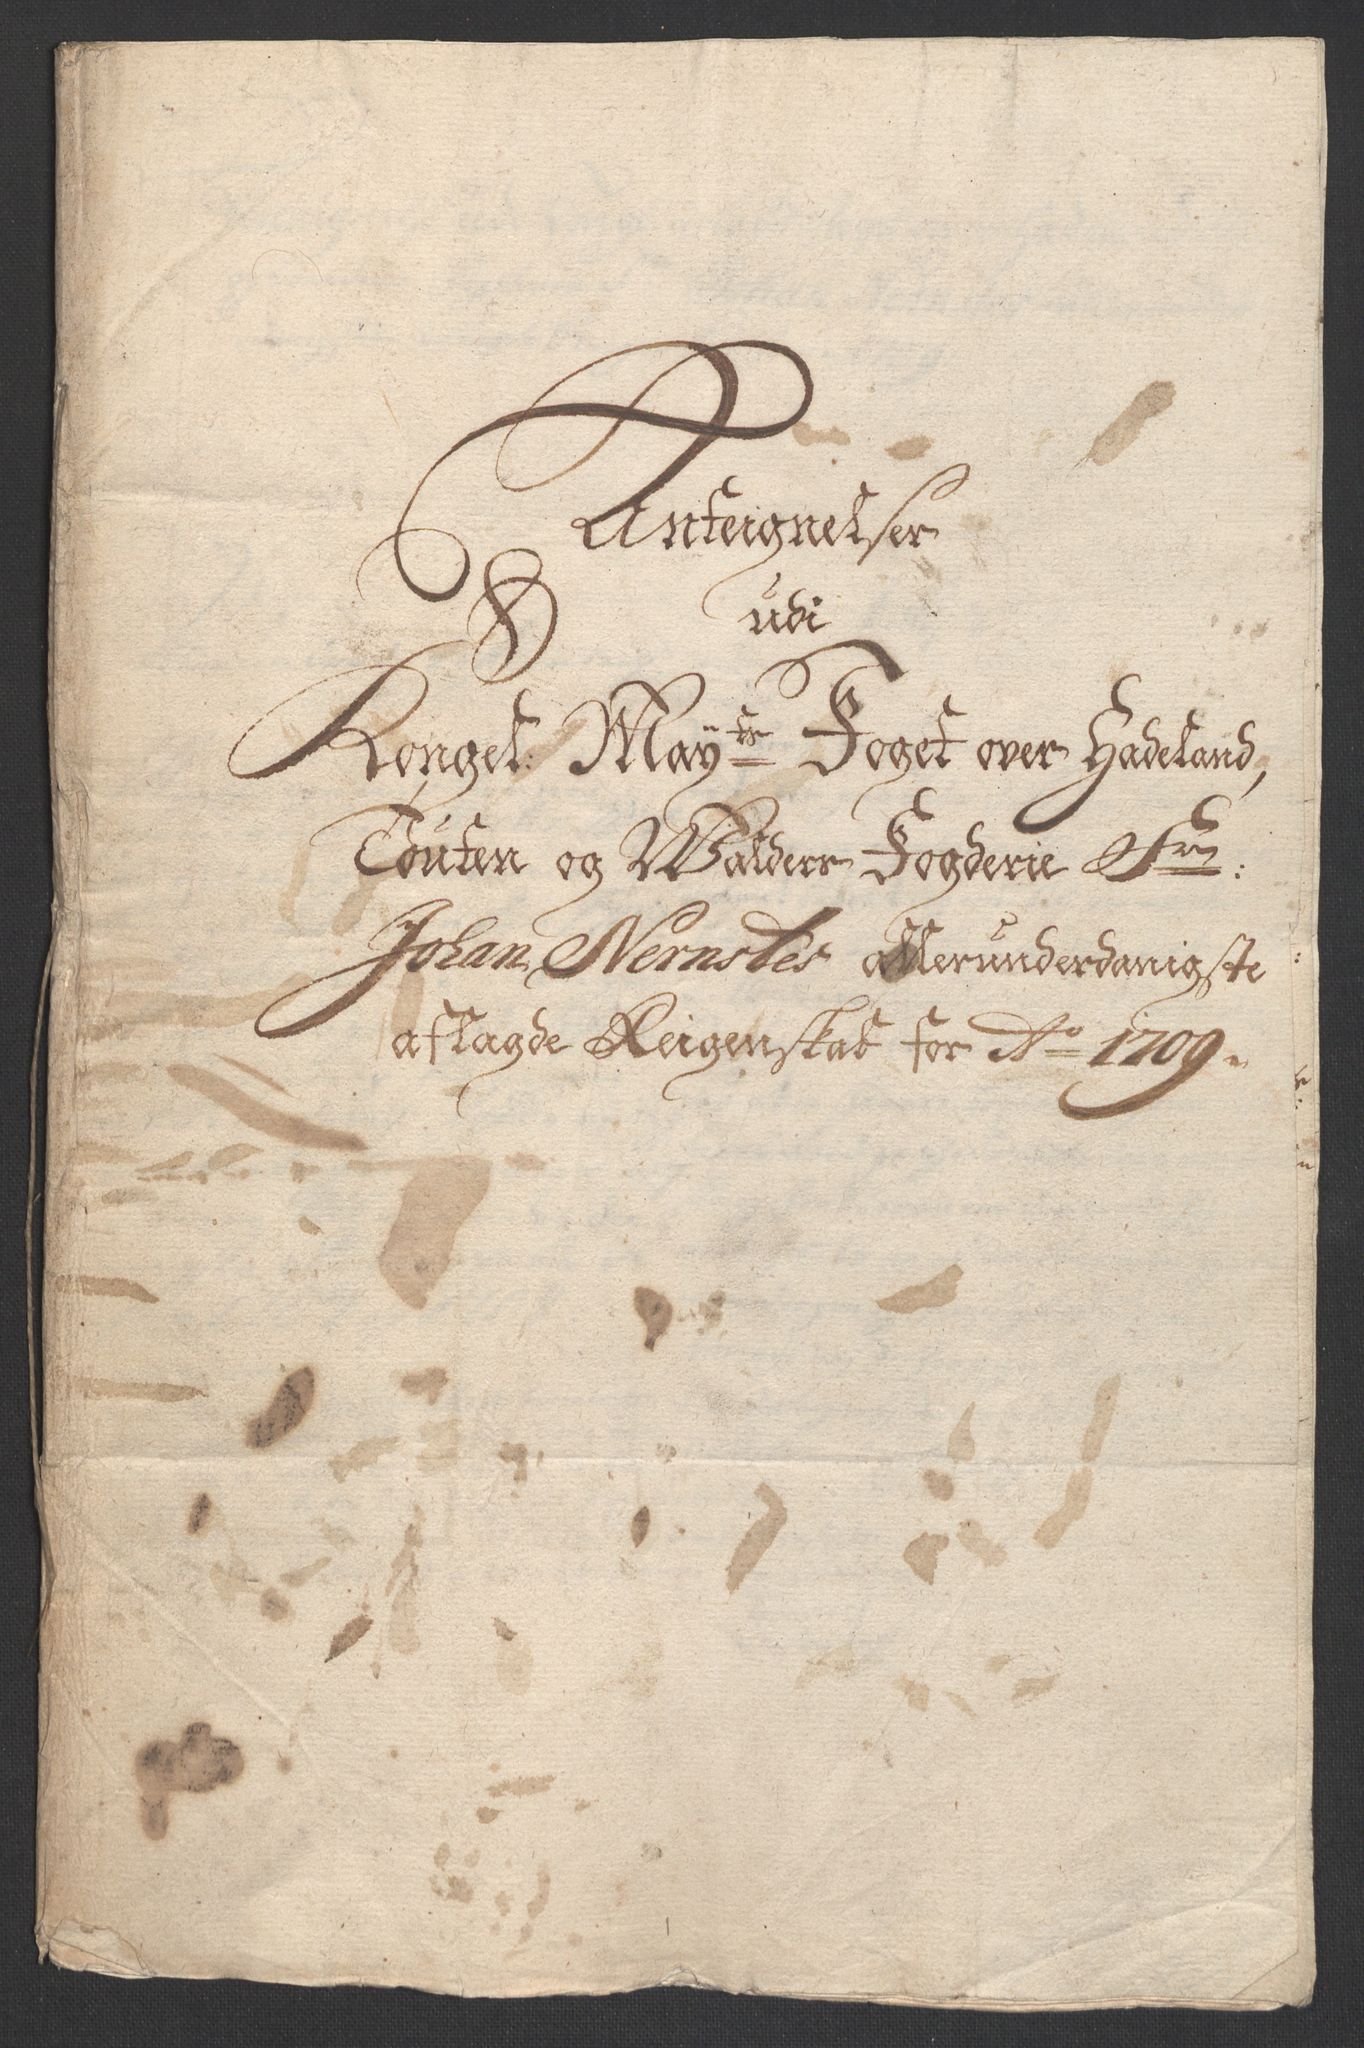 Anteignelser
udi
Kongel: Maÿ<sup>ts</sup> Foget over Hadeland,
Toúten og Walders Fogderie Sr:
Johan Nernstes allerúnderdanigste
aflagde Reigenskab for A<sup>o</sup> 1709.